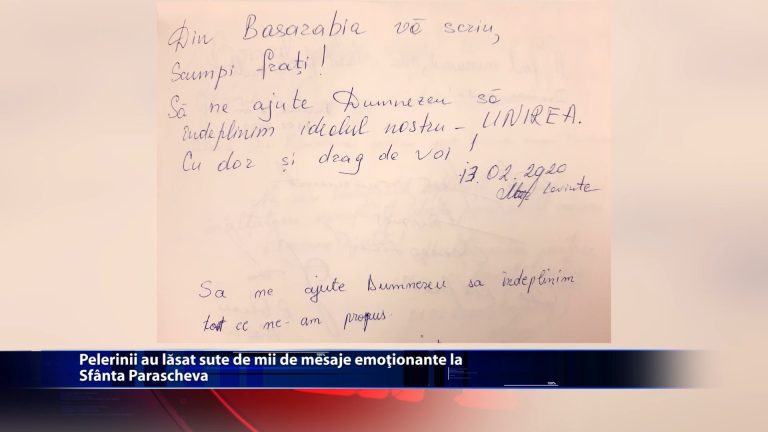 Din Basarabia vă scriu,
Scumpi frați!
Să ne ajute Dumnezeu să
îndeplinim idealul nostru - UNIREA.
Cu dor și drag de voi!
13.02.2020
Sa ne ajute Dumnezeu sa îndeplinim
tot ce ne-am propus.
Pelerinii au lăsat sute de mii de mesaje emoţionante la
Sfânta Parascheva